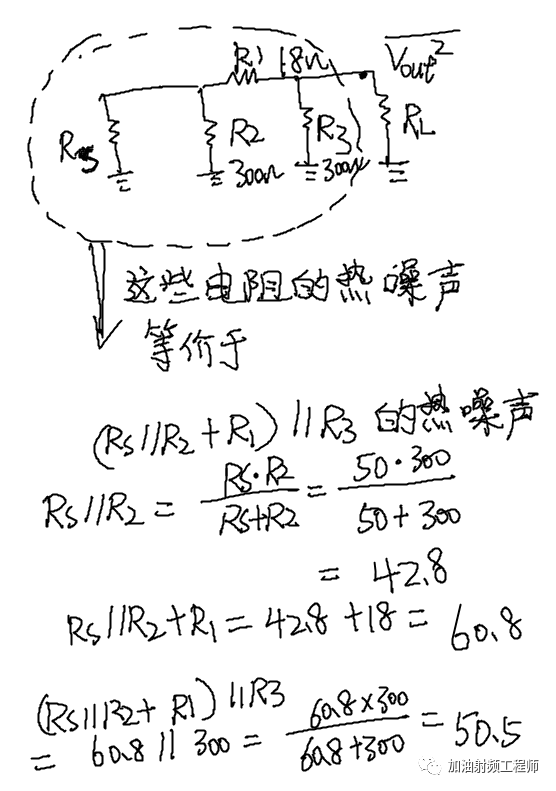 R1 18Ω
Vout²
Rs
R2
300Ω
R3
300Ω
RL
这些电阻的热噪声
等价于
(Rs//R2+R1)//R3 的热噪声
Rs//R2 = Rs·R2 / Rs+R2 = 50·300 / 50+300
= 42.8
Rs//R2+R1 = 42.8+18 = 60.8
(Rs//R2+R1)//R3
= 60.8//300 = 60.8×300 / 60.8+300 = 50.5
加油射频工程师